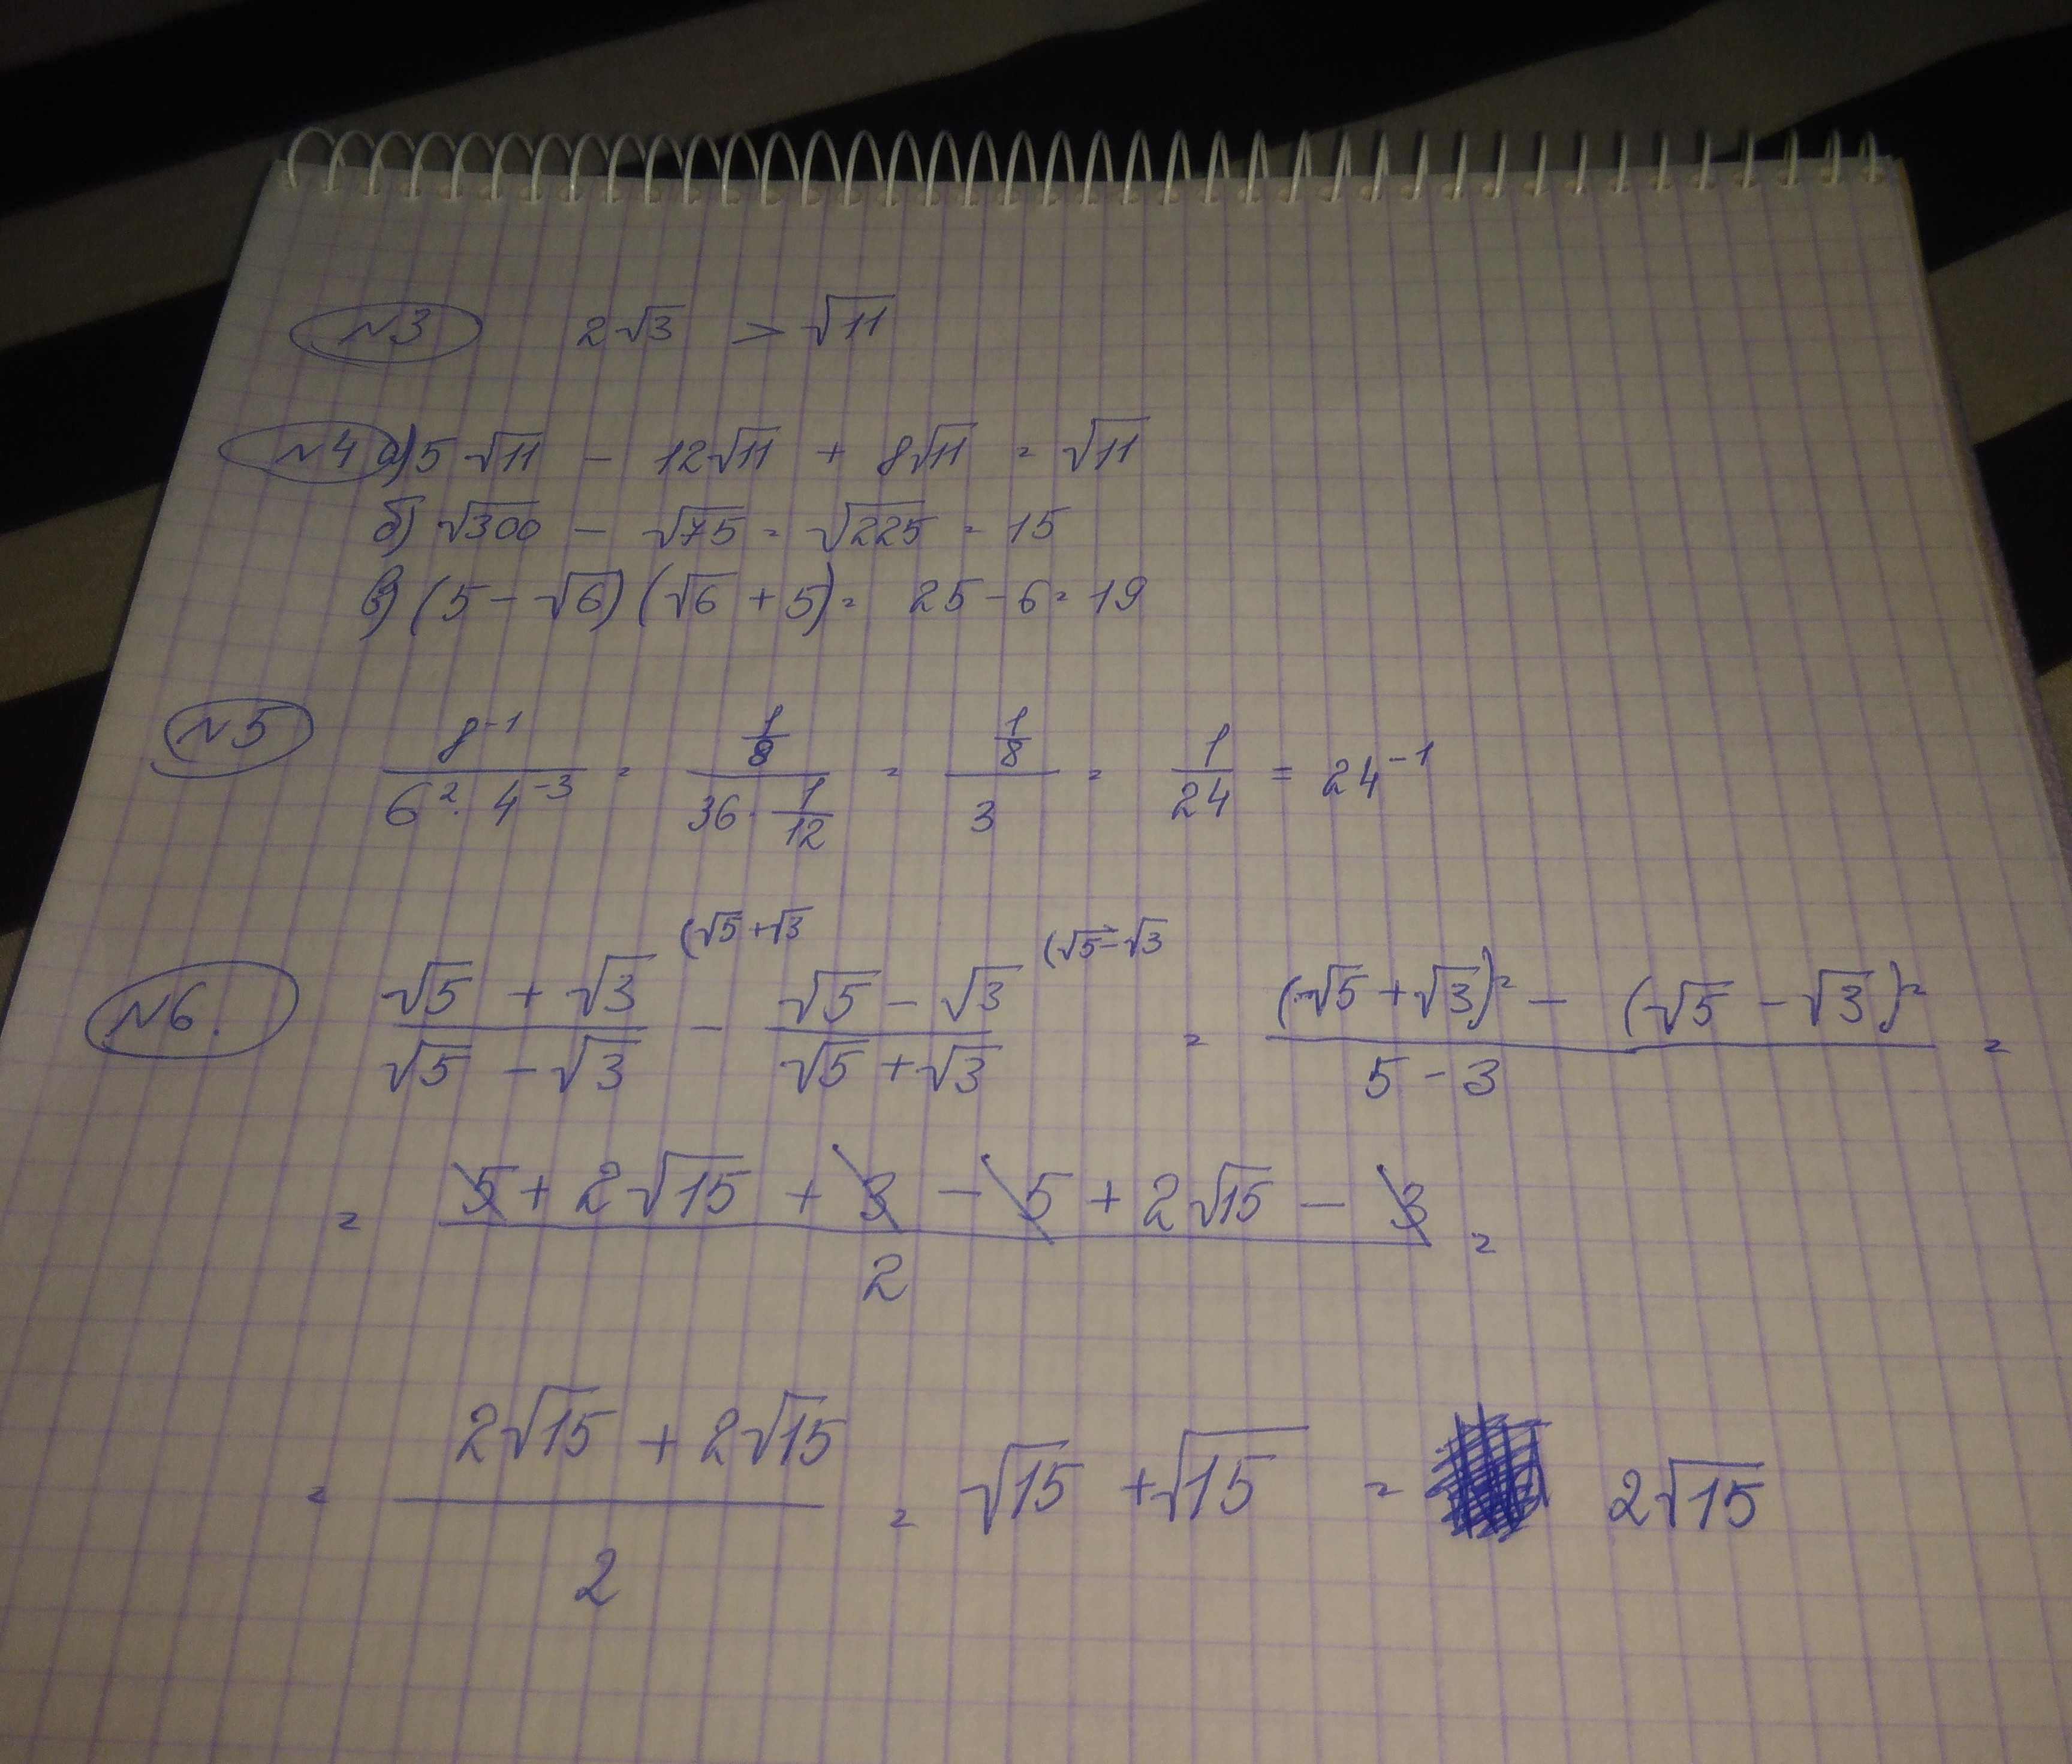 №3 2√3 > √11
№4 а) 5√11 - 12√11 + 8√11 = √11
б) √300 - √75 = √225 = 15
в) (5 - √6)(√6 + 5) = 25 - 6 = 19
№5 8⁻¹/(6² · 4⁻³) = (1/8)/(36 · 1/12) = (1/8)/3 = 1/24 = 24⁻¹
(√5 + √3 (√5 - √3
№6. (√5 + √3)/(√5 - √3) - (√5 - √3)/(√5 + √3) = ((√5 + √3)² - (√5 - √3)²)/(5 - 3) =
= (5 + 2√15 + 3 - 5 + 2√15 - 3)/2 =
= (2√15 + 2√15)/2 = √15 + √15 = 2√15